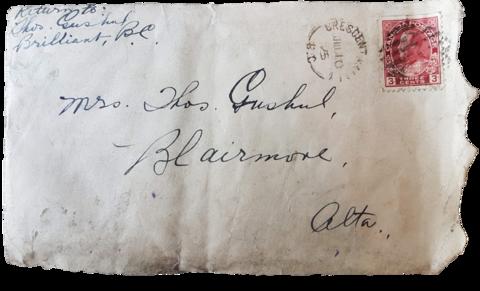 Return to:
Thos. Gushul
Brilliant, B.C.
CRESCENT
JUL 10
25
B.C.
3 CENTS 3
Mrs. Thos. Gushul,
Blairmore,
Alta.,